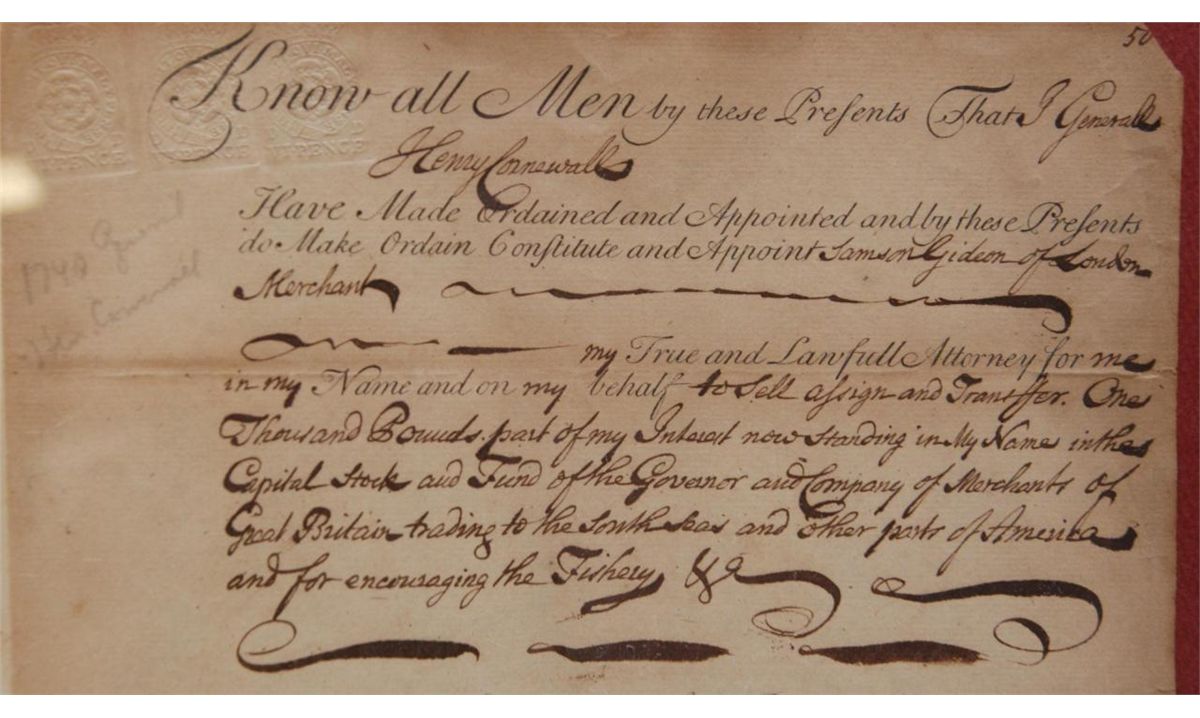 50
Know all Men by these Presents That I Generall
Henry Cornewall
Have Made Ordained and Appointed and by these Presents
do Make Ordain Constitute and Appoint Samson Gideon of London
Merchant
my True and Lawfull Attorney for me
in my Name and on my behalf to Sell assign and Transffer. One
Thousand Pounds part of my Interest now standing in My Name in the
Capital Stock and Fund of the Governor and Company of Merchants of
Great Britain trading to the South Seas and other parts of America
and for encouraging the Fishery &c
1740 General
PENCE